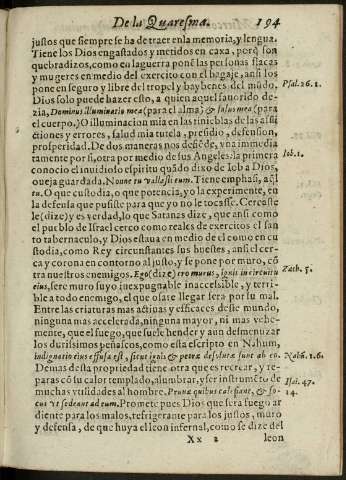 De la Quaresma. 194
justos que siempre se ha de traer en la memoria, y lengua.
Tiene los Dios engastados y metidos en caxa, porq̃ son
quebradizos, como en la guerra ponẽ las personas flacas
y mugeres en medio del exercito con el bagaje, ansi los
pone en seguro y libre del tropel y baybenes del mũdo,
Psal. 26. 1.
Dios solo puede hazer esto, a quien aquel fauorido de-
zia, Dominus illuminatio mea (para el alma) & salus mea (para
el cuerpo.) O illuminacion mia en las tinieblas de las afli
ctiones y errores, salud mia tutela, presidio, defension,
prosperidad. De dos maneras nos defiẽde, vna immedia
tamente por si, otra por medio de sus Angeles: la primera
Iob. 1.
conocio el inuidioso espiritu quãdo dixo de Iob a Dios,
oueja guardada, Nonne tu vallasti eum. Tiene emphasi, aq̃l
tu. O que custodia, o que potencia, yo la experimente, en
la defensa que pusiste para que yo no le tocasse. Cercaste
le (dize) y es verdad, lo que Satanas dize, que ansi como
el pueblo de Israel cerco como reales de exercitos el san
to tabernaculo, y Dios estaua en medio de el como en cu
stodia, como Rey circunstantes sus huestes, ansi el cer-
ca y corona en contorno al justo, y se pone por muro, cõ
Zach. 5.
tra nuestros enemigos. Ego (dize) ero murus, ignis in circuitu
eius, sere muro suyo inexpugnable inaccessible, y terri-
ble a todo enemigo, el que osare llegar sera por su mal.
Entre las criaturas mas actiuas y efficaces deste mundo,
ninguna mas accelerada, ninguna mayor, ni mas vehe-
mente, que el fuego, que suele hender y aun desmenuzar
los durissimos peñascos, como esta escripto en Nahum,
indignatio eius effusa est, sicut ignis & petræ dissolutæ sunt ab eo.
Nahũ. 1. 6.
Demas desta propiedad tiene otra que es recrear, y re-
paras cõ su calor templado, alumbrar, y ser instrumẽto de
Isai. 47.
muchas vtilidades al hombre. Prunæ quibus calefiant, & fo-
14.
cus vt sedeant ad eum. Promete pues Dios que sera fuego ar
diente para los malos, refrigerante para los justos, muro
y defensa, de que huya el leon infernal, como se dize del
Xx 2 leon